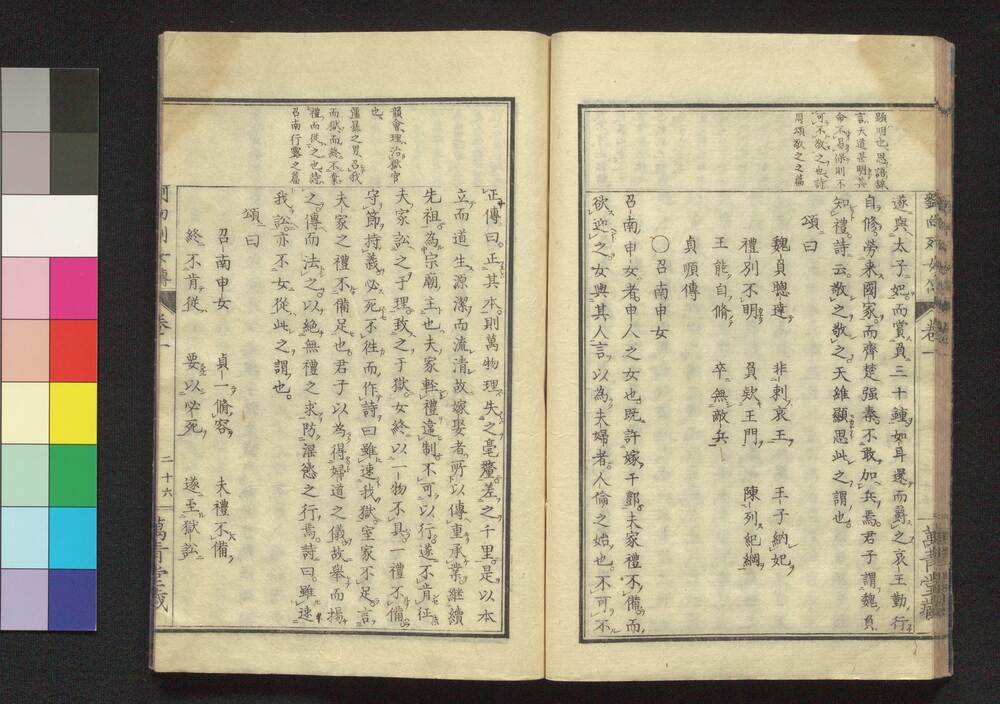 顕明也思語辭
言天道甚明其
命不易保則不
可不敬之也詩
周頌敬之之篇
遂與太子妃而賞負三十鍾如耳還而爵之哀王勤行
自修勞來國家而齊楚强秦不敢加兵焉君子謂魏負
知禮詩云敬之敬之天維顯思此之謂也
頌曰
魏負聰達 非刺哀王 王子納妃
禮列不明 負款王門 陳列紀綱
王能自脩 卒無敵兵
貞順傳
○召南申女
召南申女者申人之女也既許嫁于酆夫家禮不備而
欲迎之女與其人言以為夫婦者人倫之始也不可不
卷一
萬青堂藏
韻會理治獄官
也
强暴之男召我
而獄而終不棄
禮而從之也詩
召南行露之篇
正傳曰正其本則萬物理失之毫釐差之千里是以本
立而道生源潔而流清故嫁娶者所以傳重承業繼續
先祖為宗廟主也夫家輕禮違制不可以行遂不肯徃
夫家訟之于理致之于獄女終以一物不具一禮不備
守節持義必死不徃而作詩曰雖速我獄室家不足言
夫家之禮不備足也君子以為得婦道之儀故舉而揚
之傳而法之以絶無禮之求防淫慾之行焉詩曰雖速
我訟亦不女從此之謂也
頌曰
召南申女 貞一脩容 夫禮不備
終不肯從 要以必死 遂至獄訟
卷一
二十六